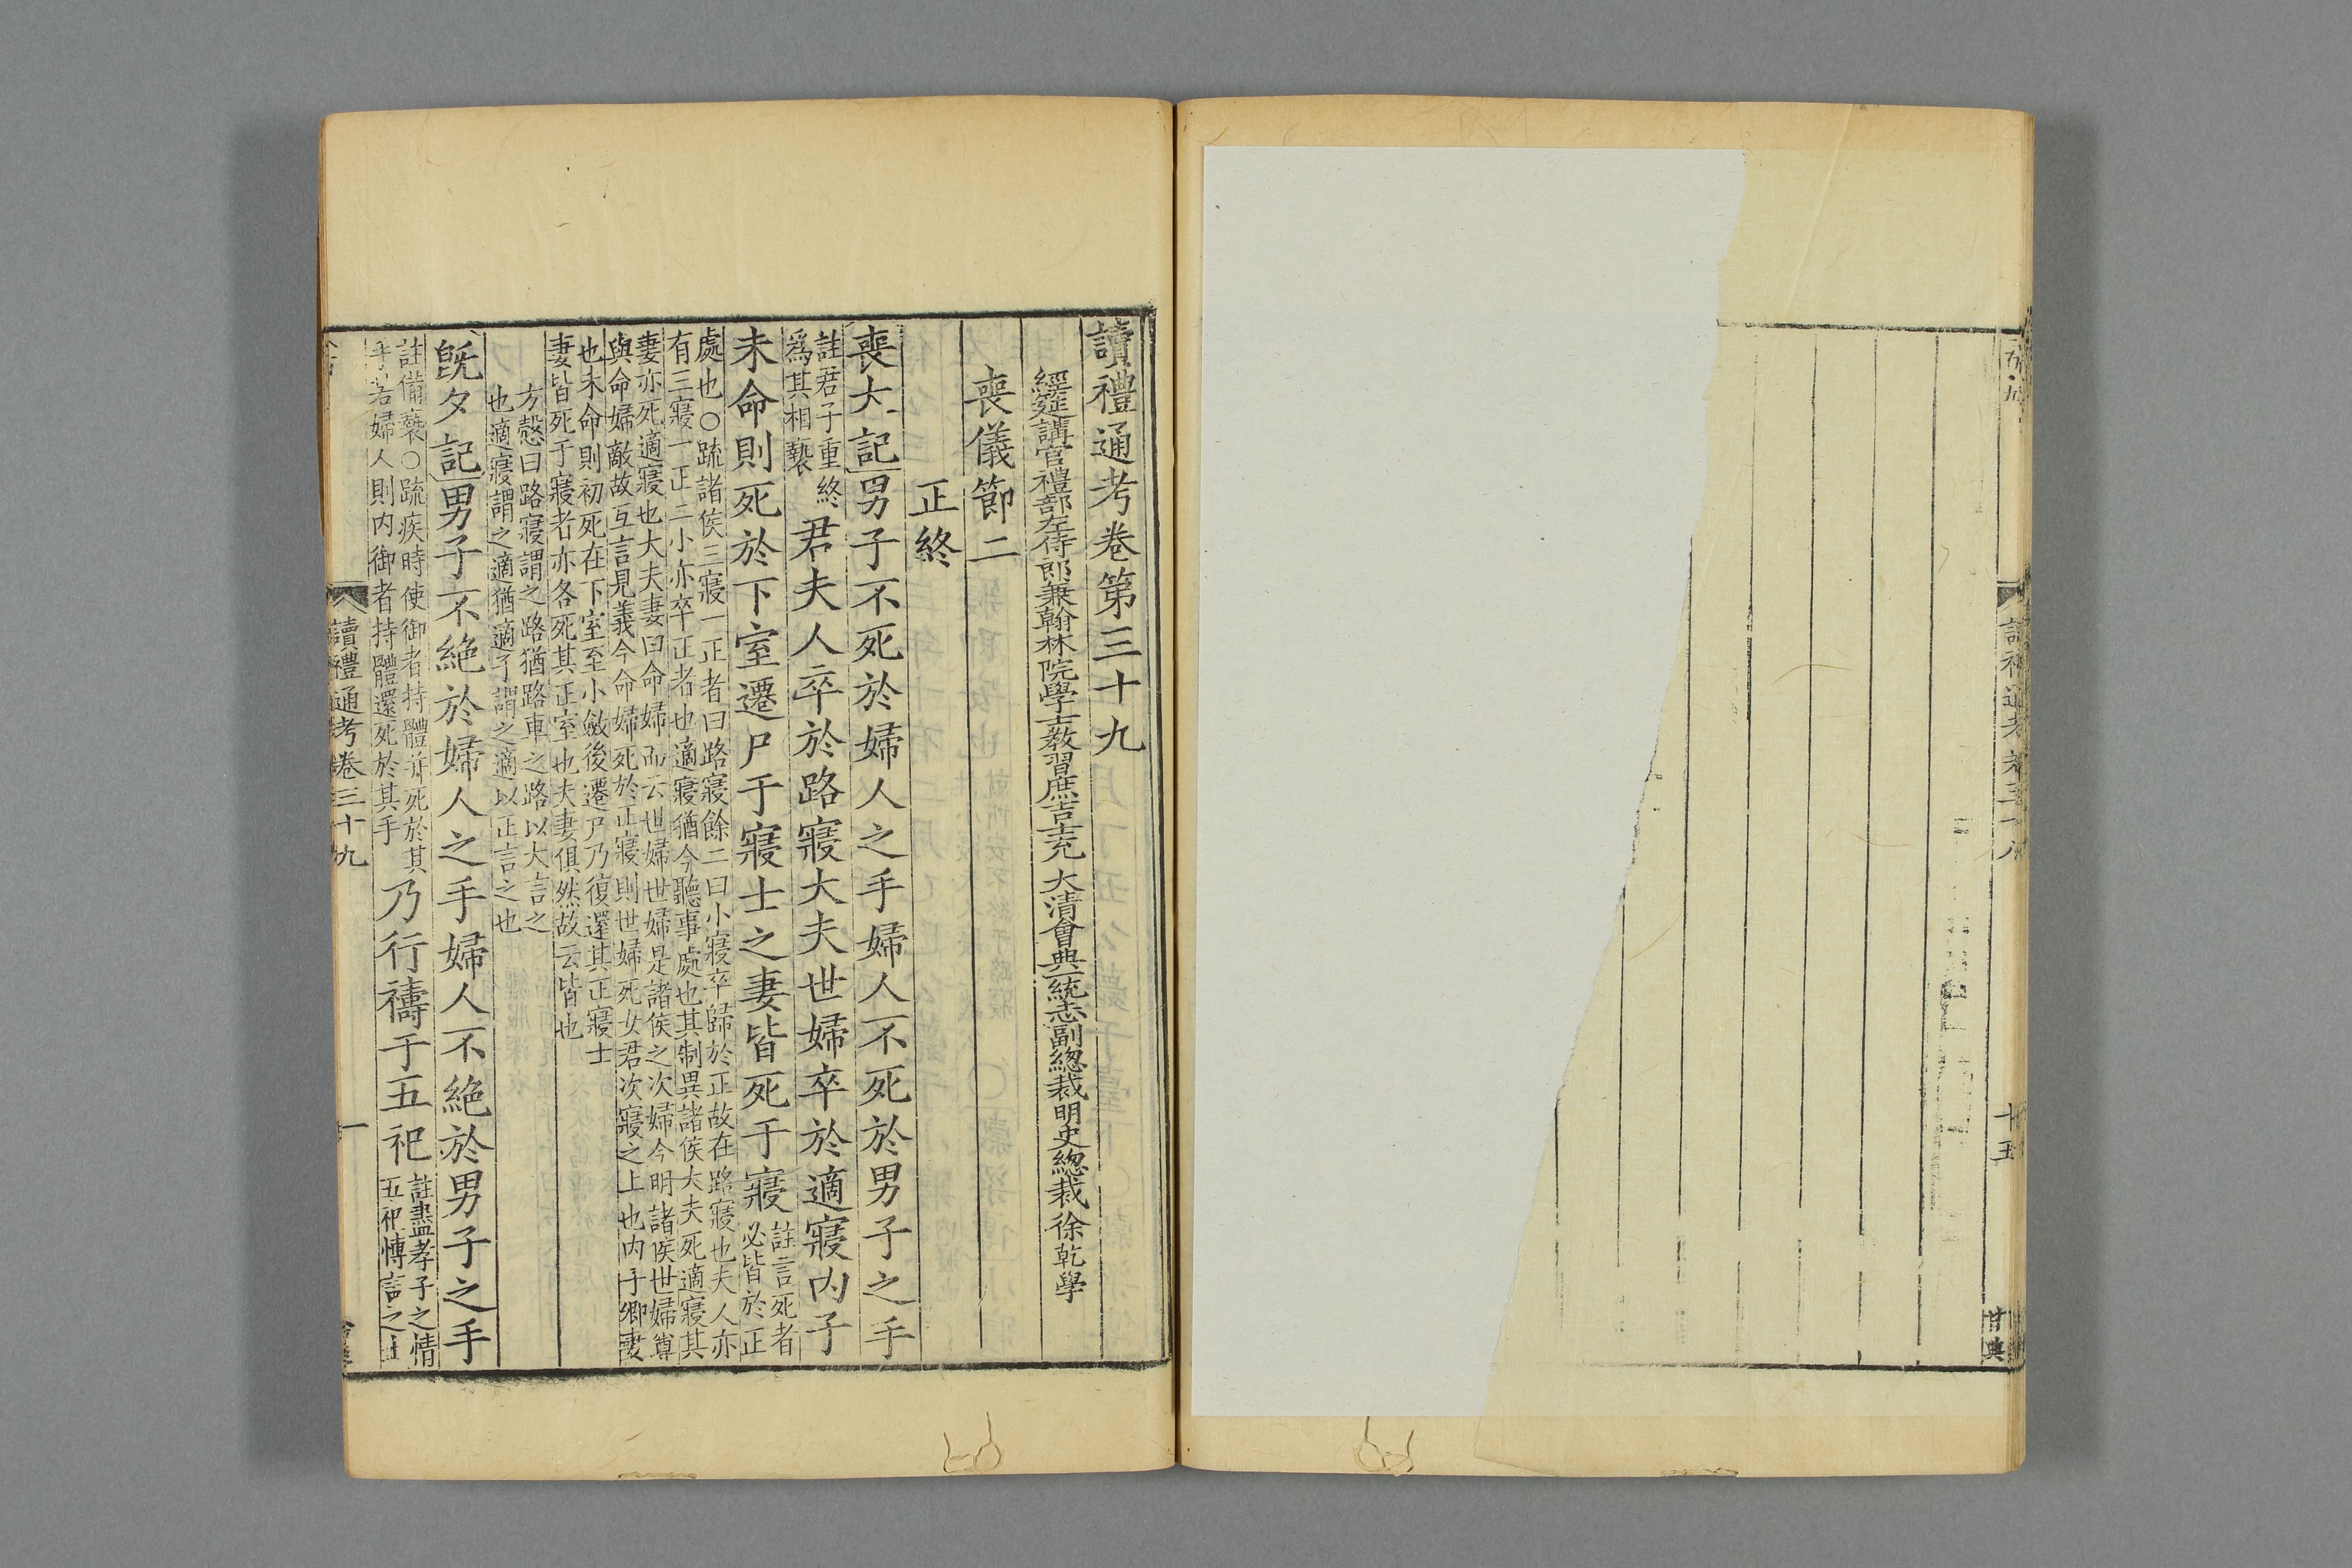 十五
讀禮通考卷第三十九
經筵講官禮部左侍郎兼翰林院學士教習庶吉士充 大清會典一統志副總裁明史總裁徐乾學
喪儀節二
正終
喪大記男子不死於婦人之手婦人不死於男子之手
註君子重終
爲其相褻
君夫人卒於路寢大夫世婦卒於適寢內子
未命則死於下室遷尸于寢士之妻皆死于寢
註言死者
必皆於正
處也○疏諸侯三寢一正者曰路寢餘二曰小寢卒歸於正故在路寢也夫人亦
有三寢一正二小亦卒正者也適寢猶今聽事處也其制異諸侯大夫死適寢其
妻亦死適寢也大夫妻曰命婦而云世婦世婦是諸侯之次婦今明諸侯世婦尊
與命婦敵故互言見義今命婦死於正寢則世婦死女君次寢之上也內子卿妻
也未命則初死在下室至小斂後遷尸乃復還其正寢士
妻皆死于寢者亦各死其正室也夫妻俱然故云皆也
方慤曰路寢謂之路猶路車之路以大言之
也適寢謂之適猶適子謂之適以正言之也
旣夕記男子不絕於婦人之手婦人不絕於男子之手
註備褻○疏疾時使御者持體并死於其
手若婦人則內御者持體還死於其手
乃行禱于五祀
註盡孝子之情
五祀博言之士
讀禮通考卷三十九
一